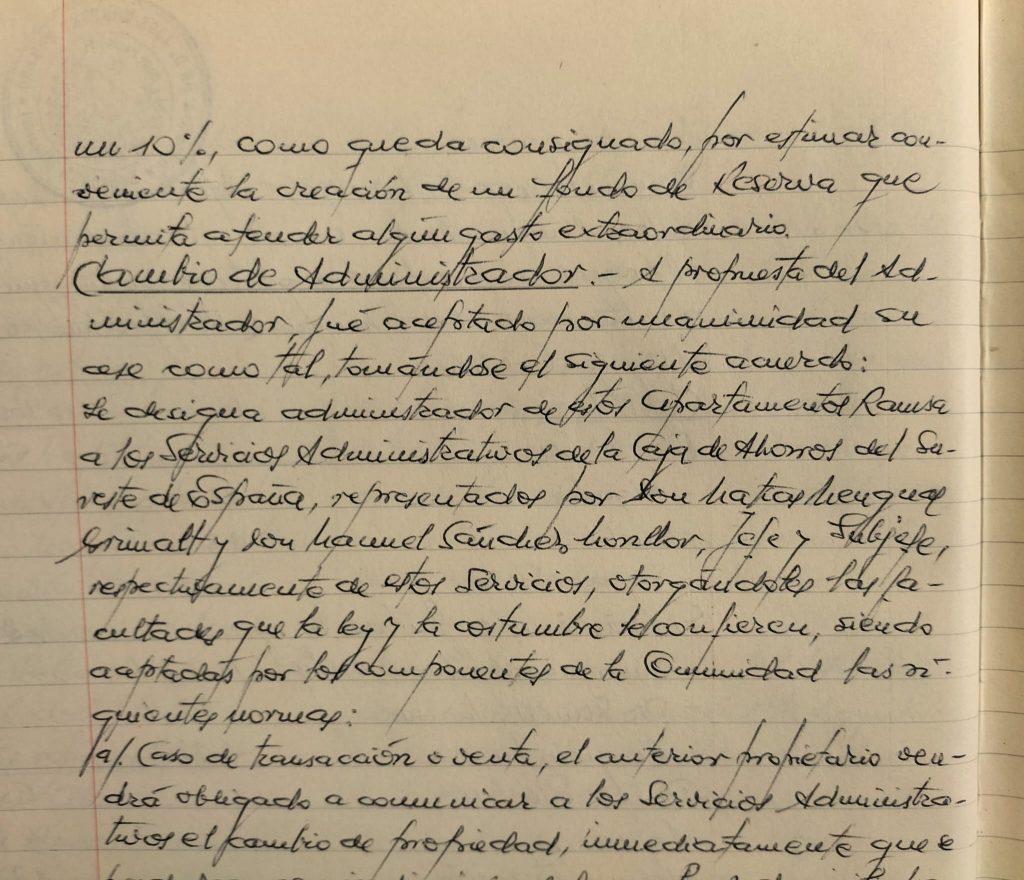 un 10%, como queda consignado, por estimar con-
veniente la creación de un fondo de Reserva que
permita atender algún gasto extraordinario.
Cambio de Administrador.- A propuesta del Ad-
ministrador, fué aceptado por unanimidad su
cese como tal, tomándose el siguiente acuerdo:
Se designa administrador de estos Apartamentos Ramsa
a los Servicios Administrativos de la Caja de Ahorros del Su-
reste de España, representados por Don Matías Mengual
Grimalt y Don Manuel Sánchez Monllor, Jefe y Subjefe,
respectivamente de estos Servicios, otorgándoles las fa-
cultades que la ley y la costumbre le confieren, siendo
aceptadas por los componentes de la Comunidad las si-
guientes normas:
a/. Caso de transacción o venta, el anterior propietario ven-
drá obligado a comunicar a los Servicios Administra-
tivos el cambio de propiedad, inmediatamente que se